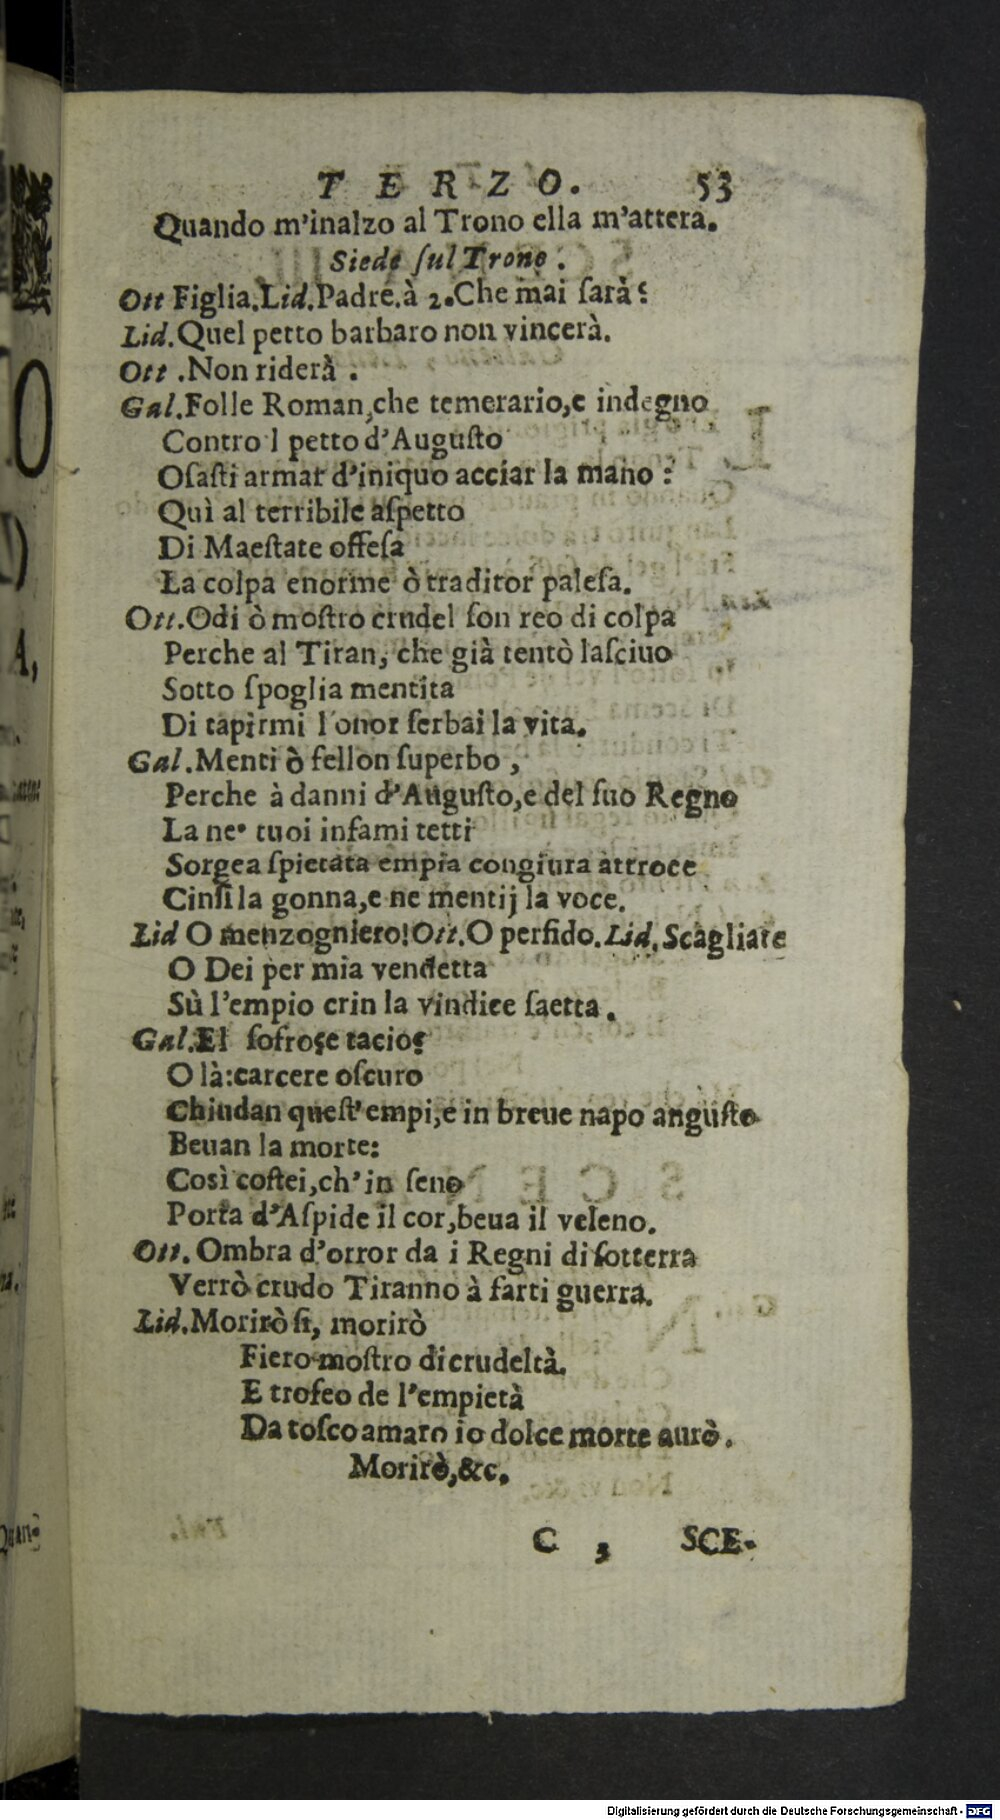 TERZO. 53
Quando m'inalzo al Trono ella m'attera.
Siede ſul Trono.
Ott Figlia.Lid.Padre.à 2.Che mai ſarà?
Lid.Quel petto barbaro non vincerà.
Ott .Non riderà .
Gal.Folle Roman,che temerario,e indegno
Contro l petto d'Auguſto
Oſaſti armar d'iniquo acciar la mano :
Quì al terribile aſpetto
Di Maeſtate offeſa
La colpa enorme ò traditor paleſa.
Ott.Odi ò moſtro crudel ſon reo di colpa
Perche al Tiran, che già tentò laſciuo
Sotto ſpoglia mentita
Di rapirmi l'onor ſerbai la vita.
Gal.Menti ò fellon ſuperbo ,
Perche à danni d'Auguſto,e del ſuo Regno
La ne' tuoi infami tetti
Sorgea ſpietata empia congiura attroce
Cinſi la gonna,e ne mentij la voce.
Lid O menzogniero!Ott.O perfido.Lid.Scagliate
O Dei per mia vendetta
Sù l'empio crin la vindice ſaetta.
Gal.El ſofro?e tacio?
O là:carcere oſcuro
Chiudan queſt'empi,e in breue napo anguſto
Beuan la morte:
Così coſtei,ch'in ſeno
Porta d'Aſpide il cor,beua il veleno.
Ott. Ombra d'orror da i Regni di ſotterra
Verrò crudo Tiranno à farti guerra.
Lid.Morirò ſi, morirò
Fiero moſtro di crudeltà.
E trofeo de l'empietà
Da toſco amaro io dolce morte aurò.
Morirò,&c.
C 3 SCE-
Digitalisierung gefördert durch die Deutsche Forschungsgemeinschaft - DFG